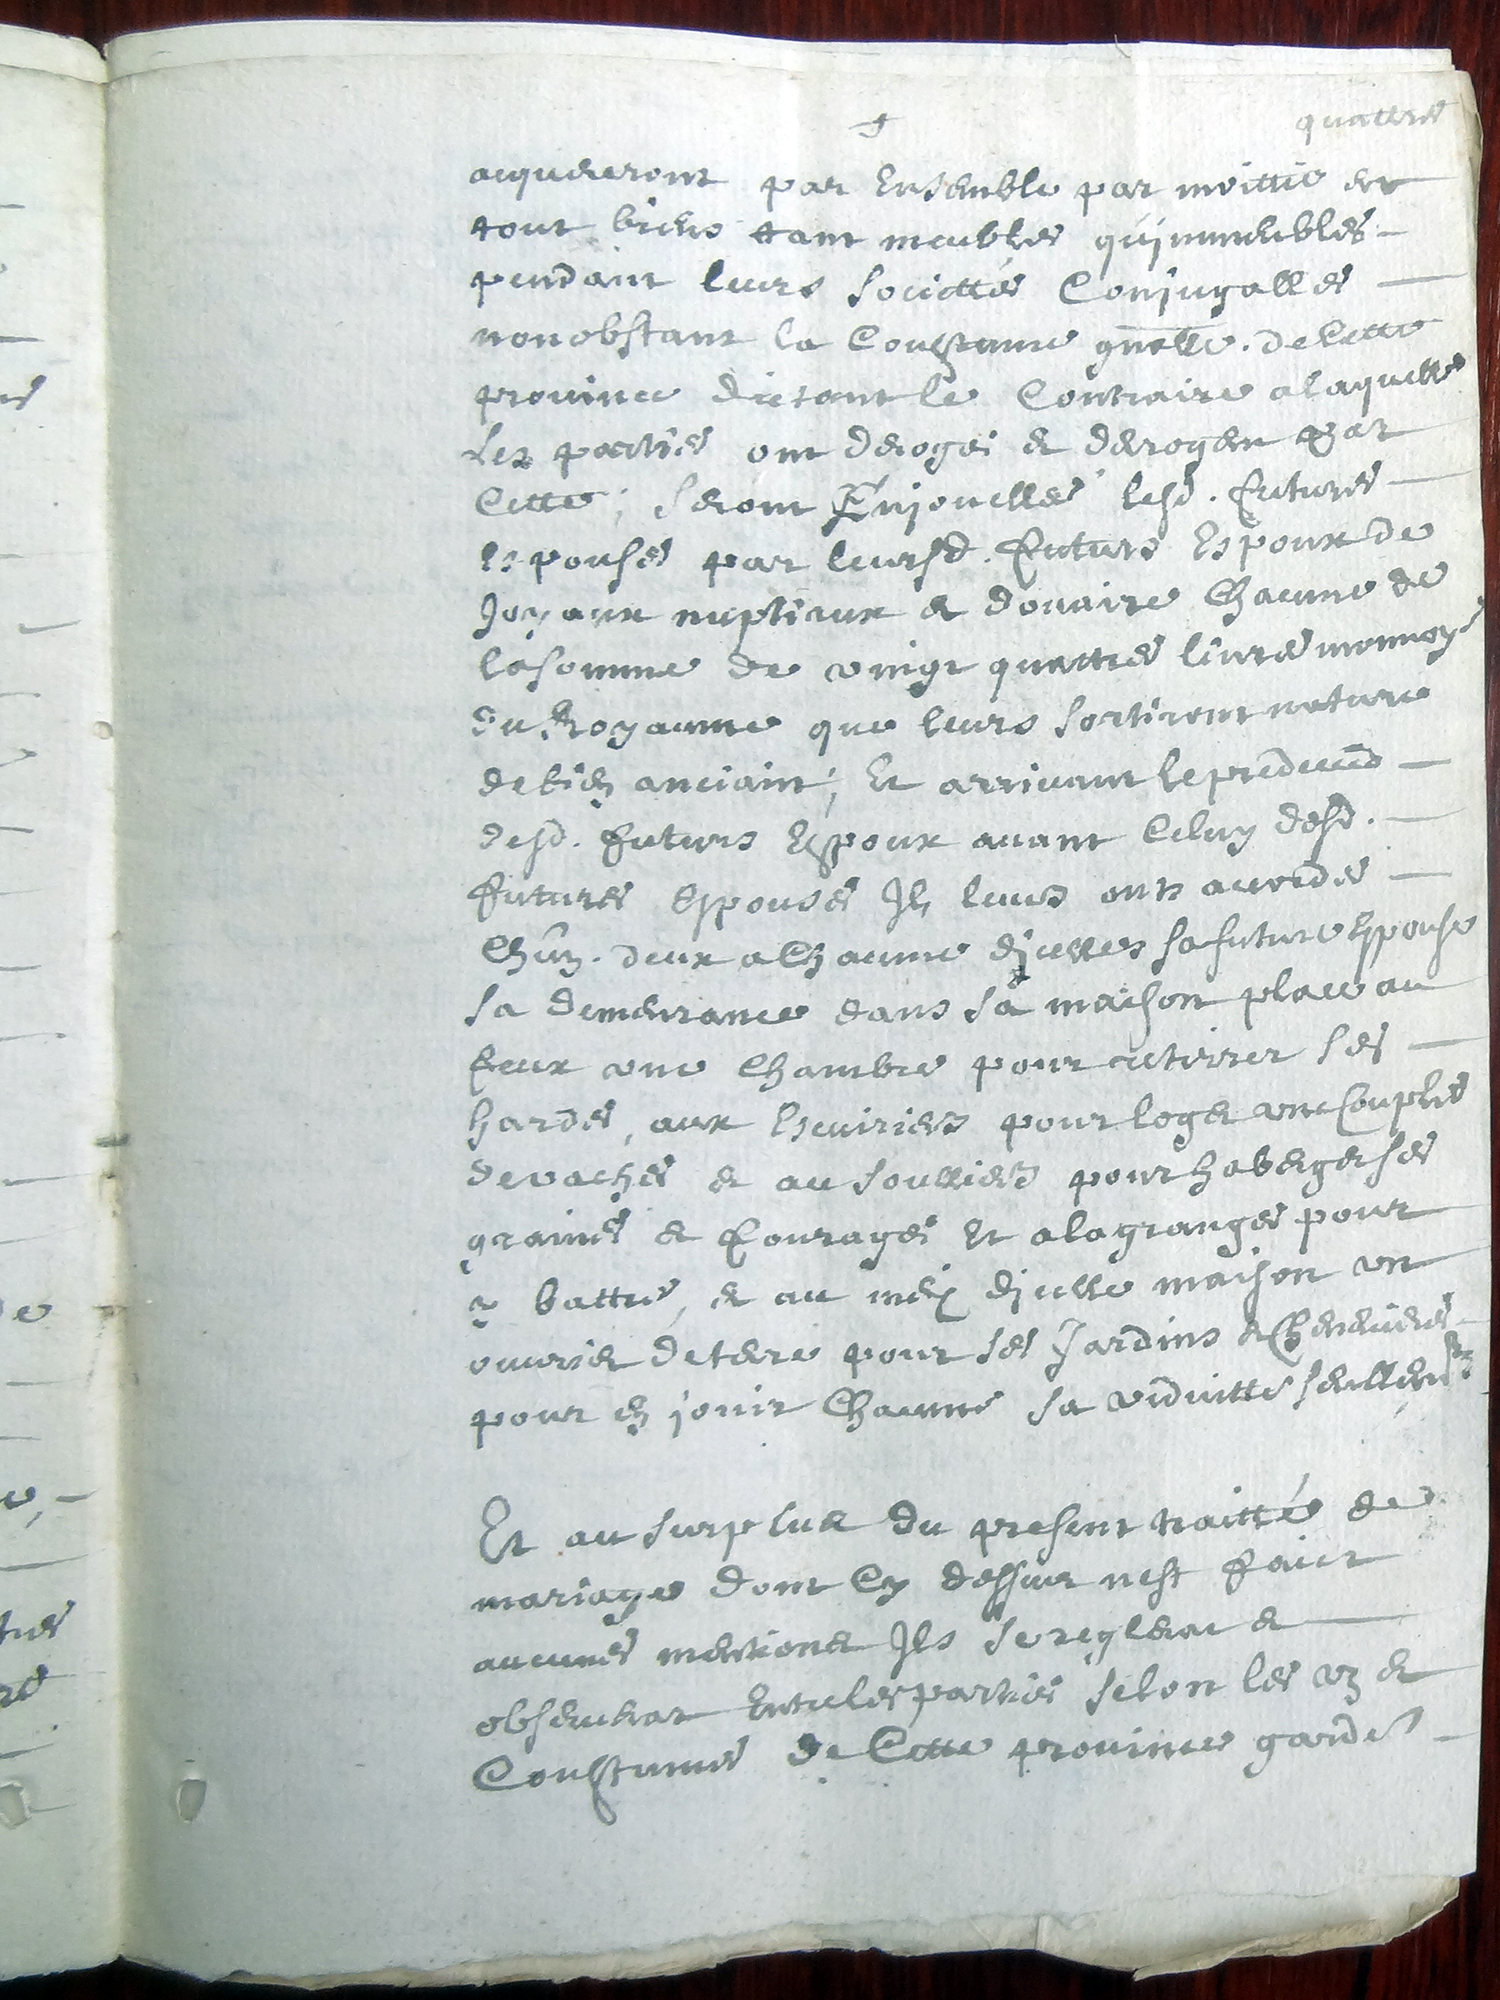 quattre
acquereront par Ensemble par moittie en
tout biens tant meubles qu'immeubles
pendant leurs societtés Conjugalles
nonobstant la Coustume gnalle. de Cette
province dictant le Contraire a laquelle
Les parties ont derogé et derogent par
Cette; seront Enjouelles lesd. futures
Espouses par leursd. futurs Espoux de
Joyaux nuptiaux et douaire Chacune de
la somme de vingt quattres livres monnoye
du Royaume que leurs sortiront nature
de bien anciain; Et arrivant le predeced
desd. futurs Espoux avant Celuy desd.
futures Espouses Ils leurs onts accordés
Chun. deux a Chacune d'jcelles sa future Espouse
sa demeurance dans sa maison place au
feux une Chambre pour retirrer ses
hardes, aux Escuiriers pour loger une Couples
de vaches et au soulliers pour haberger ses
graines et fourages Et a la granges pour
y battre, et au meix d'jcelle maison un
ouvrier de tere pour ses Jardins et Cheneviere
pour en jouir Chacune sa viduitté seullemt.
Et au surplus du present traitté de
mariage dont Cy dessus nest faict
aucunes mentiones Ils se regleront et
observeront Entre les parties selon les uz et
Coustumes de Cette province gardes